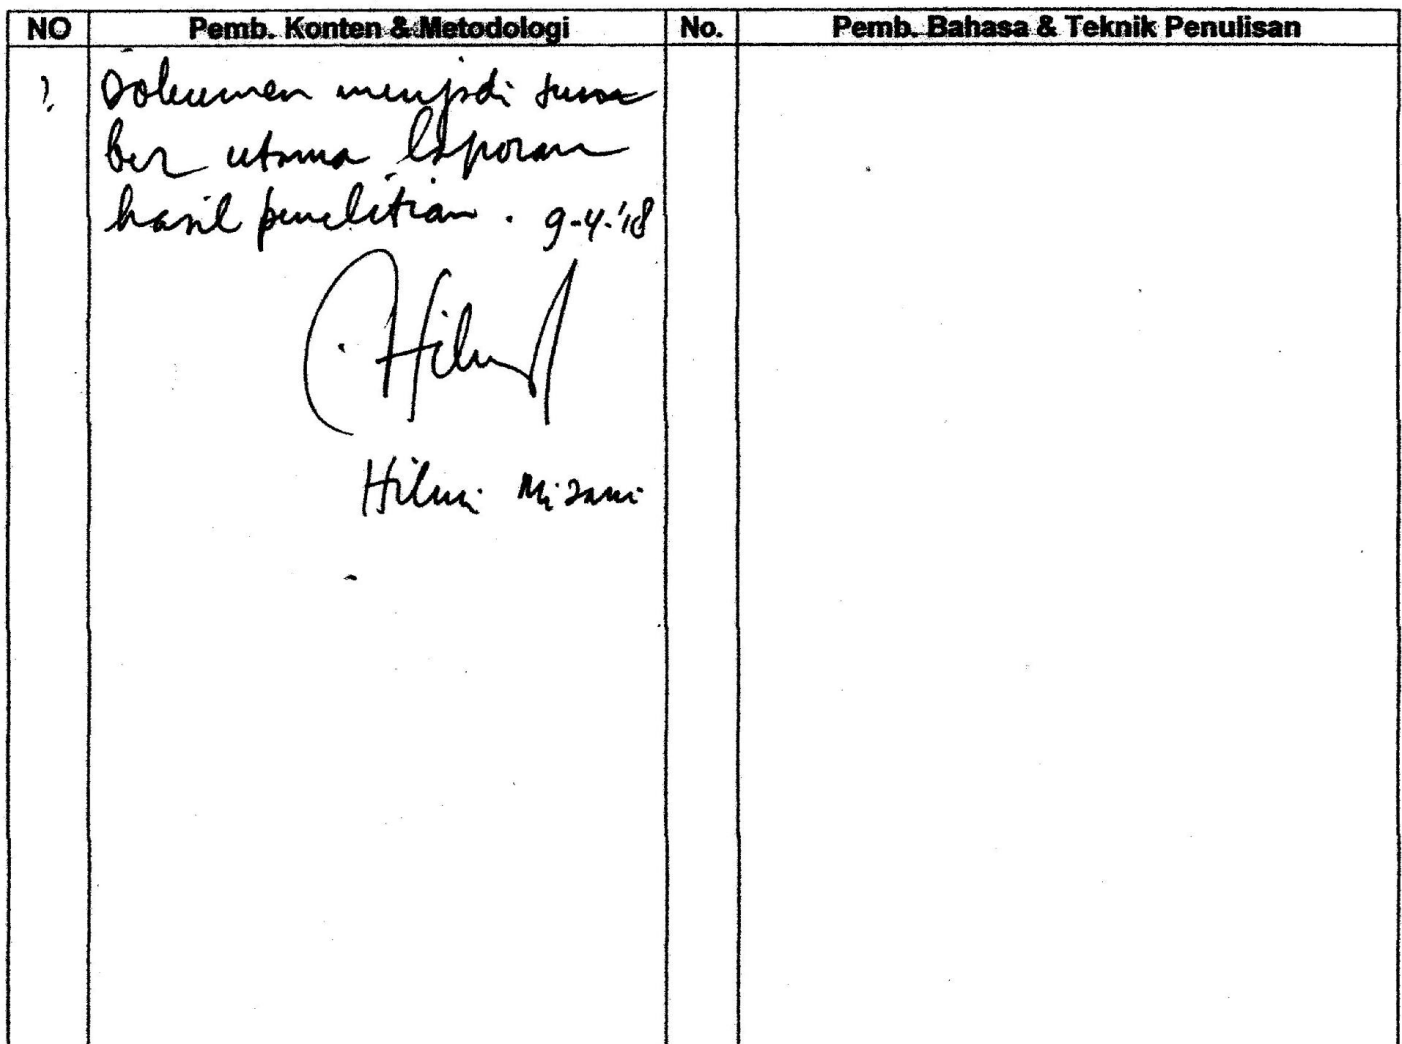 NO Pemb. Konten & Metodologi No. Pemb. Bahasa & Teknik Penulisan
Dokumen menjadi sum
ber utama laporan
hasil penelitian. 9-4-'18
Hilmi
Hilmi Mizani